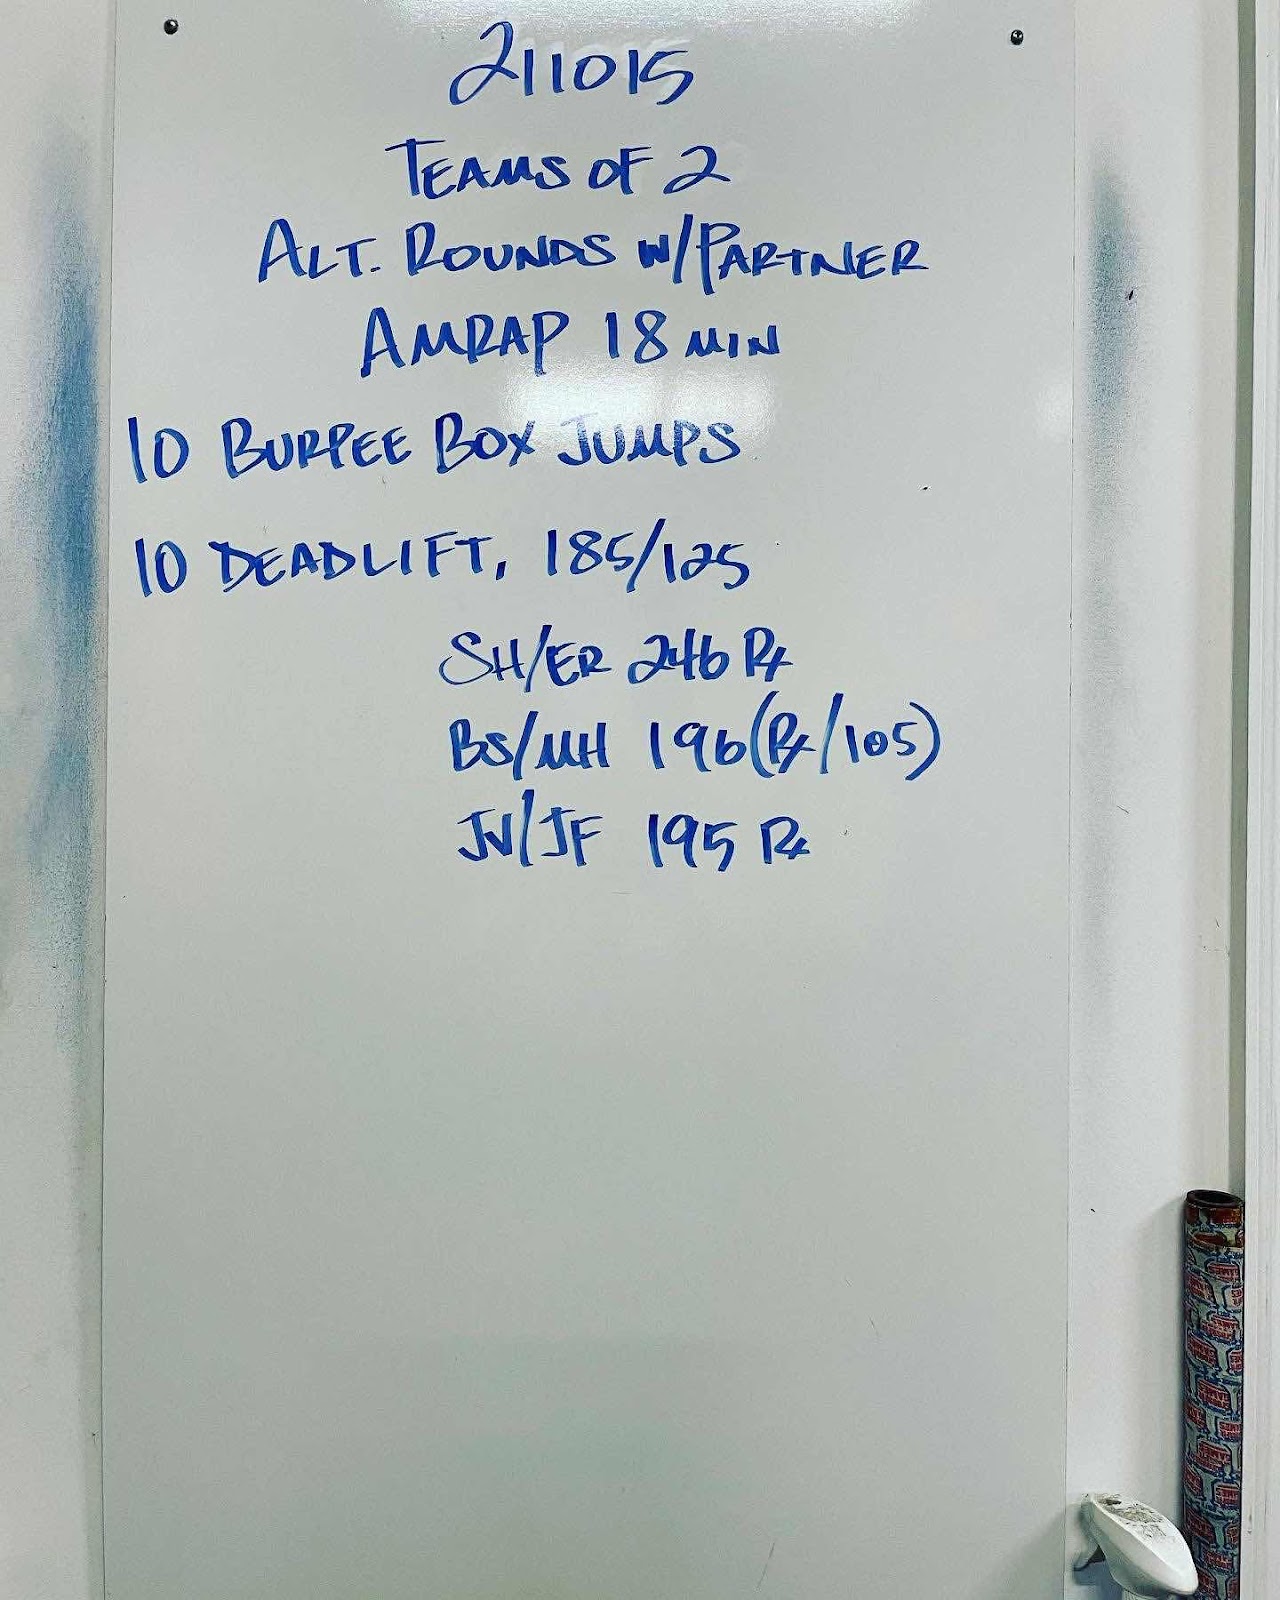 211015
TEAMS OF 2
ALT. ROUNDS W/PARTNER
AMRAP 18 MIN
10 BURPEE BOX JUMPS
10 DEADLIFT, 185/125
SH/ER 246 Rx
BS/MH 196 (Rx/105)
JV/JF 195 Rx